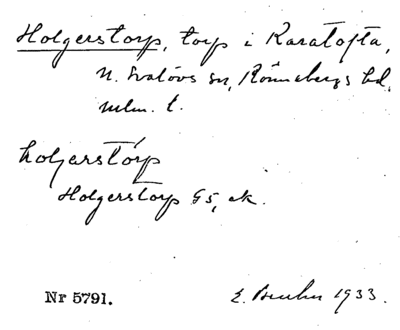 Holgerstorp, torp i Karatofta,
N. Svalövs sn, Rönnebergs hd,
Mlm. l.
holjarstórp
Holgerstorp G5, ek.
Nr 5791.
1933.